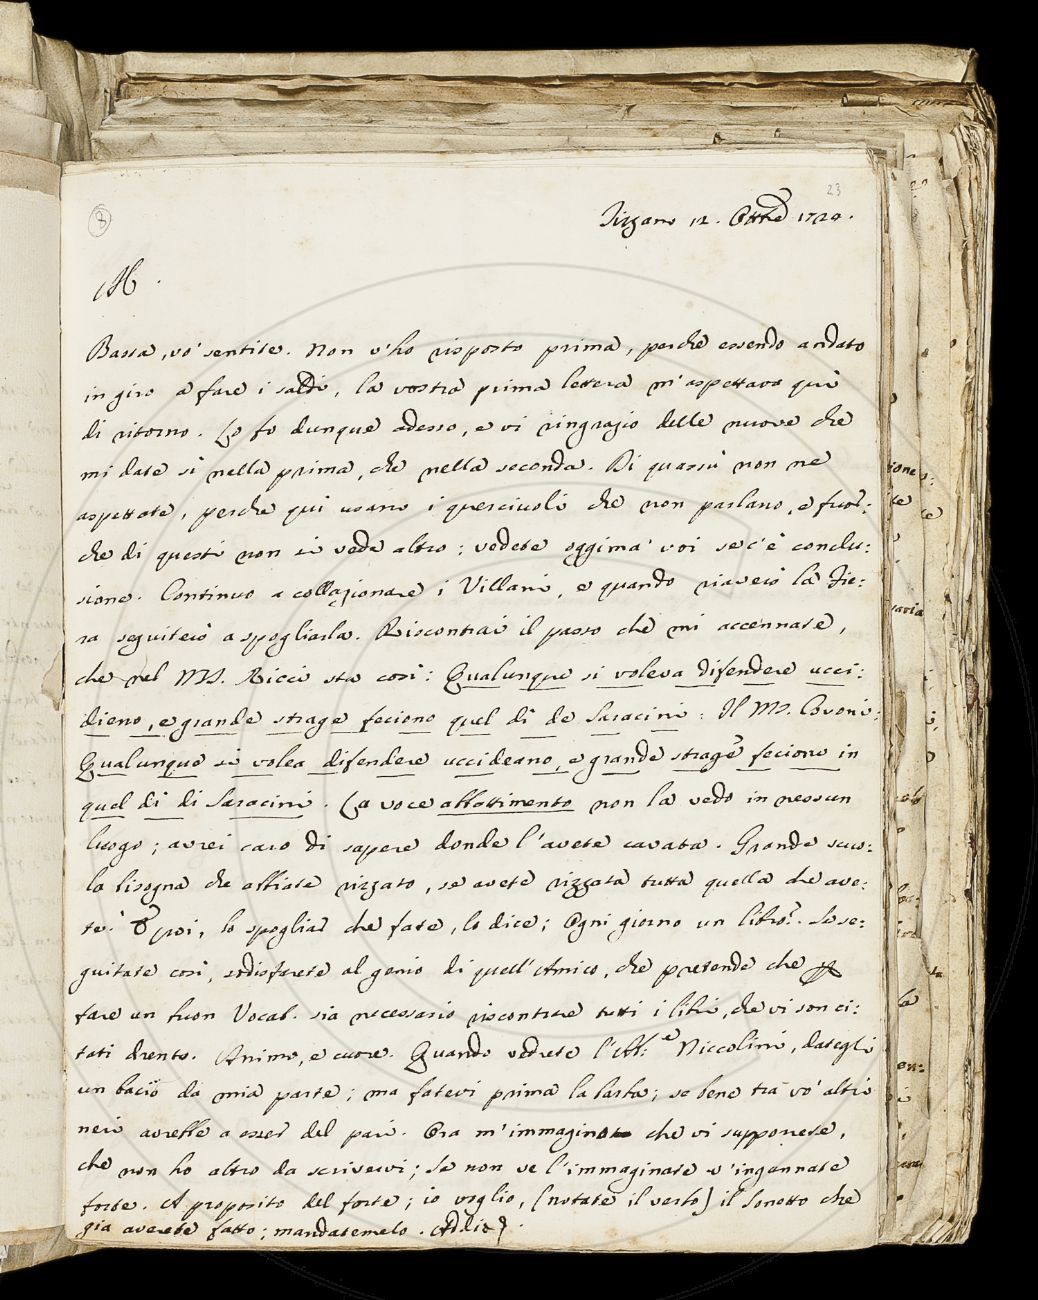 8
23
Tizzano 12. Ottbre 1724.
M.
Basta, vo' sentite. Non v'ho risposto prima, perchè essendo andato
in giro a fare i saldi, la vostra prima lettera m'aspettava quì
di ritorno. Lo fo dunque adesso, e vi ringrazio delle nuove che
mi date sì nella prima, che nella seconda. Di quassù non ne
aspettate, perche qui usano i querciuoli che non parlano, e fuor:
che di questi non si vede altro; vedete oggima' voi se c'è conclu:
sione. Continuo a collazionare i Villani, e quando riaverò la Fie:
ra seguiterò a spogliarla. Riscontrai il passo che mi accennate,
che nel MS. Ricci sta così: Qualunque si voleva difendere ucci:
dieno, e grande strage feciono quel dì de Saracini. Il MS. Covoni:
Qualunque si volea difendere uccideano, e grande strage feciono in
quel dì di Saracini. La voce abbottimento non la vedo in nessun
luogo; avrei caro di sapere donde l'avete cavata. Grande scuo:
la bisogna che abbiate rizzato, se avete rizzata tutta quella che ave:
te. E poi, lo spogliar che fate, lo dice; Ogni giorno un libro. Se se:
guitate così, sodisfarete al genio di quell'Amico, che pretende che
fare un buon Vocab. sia necessario riscontrare tutti i libri, che vi son ci:
tati drento. Animo, e cuore. Quando vedrete l'Ab.e Niccolini, dategli
un bacio da mia parte; ma fatevi prima la barba; se bene tra vo' altri
neri avrebbe a esser del pari. Ora m'immagino che vi supponete,
che non ho altro da scrivervi; Se non ve l'immaginate v'ingannate
forte. A proposito del forte; io voglio, (notate il verbo) il Sonetto che
gia averete fatto; mandatemelo. Addio.